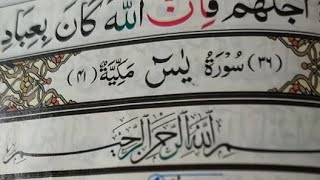 اجلهم فإن الله كان بعباد
(٣٦) سُورَةُ يٰسٓ مَكِّيَّةٌ (٤١)
بسم الله الرحمن الرحيم